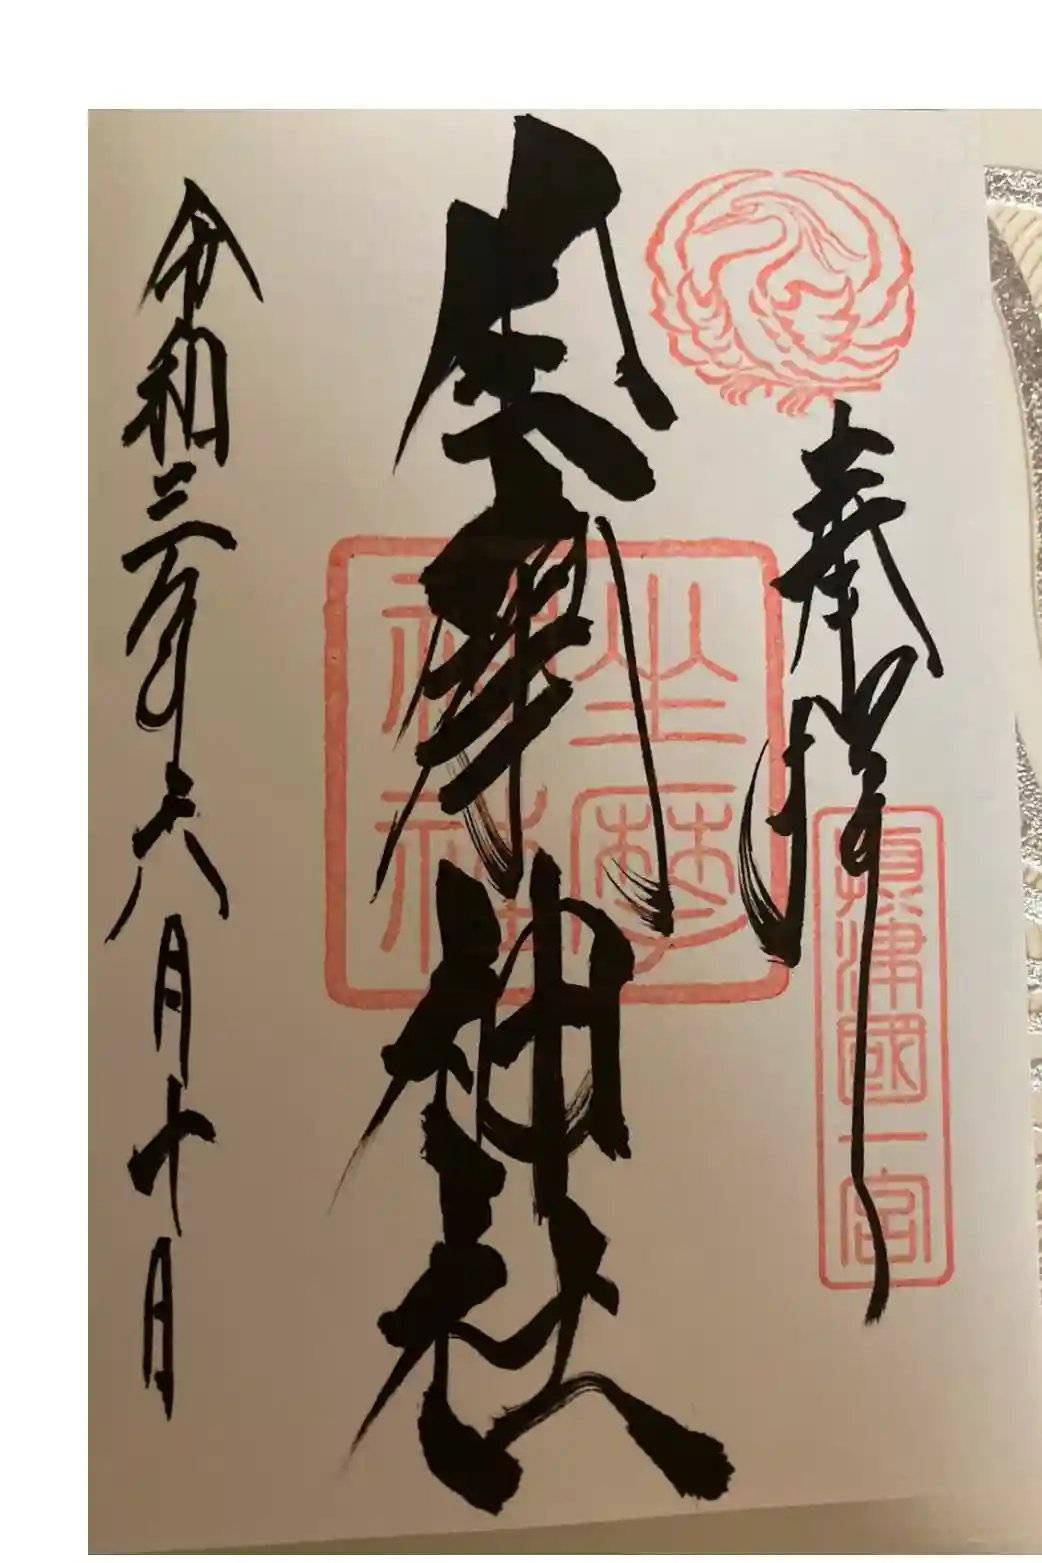 奉拝
摂津國一宮
坐摩神社
坐摩神社
令和三年六月十日